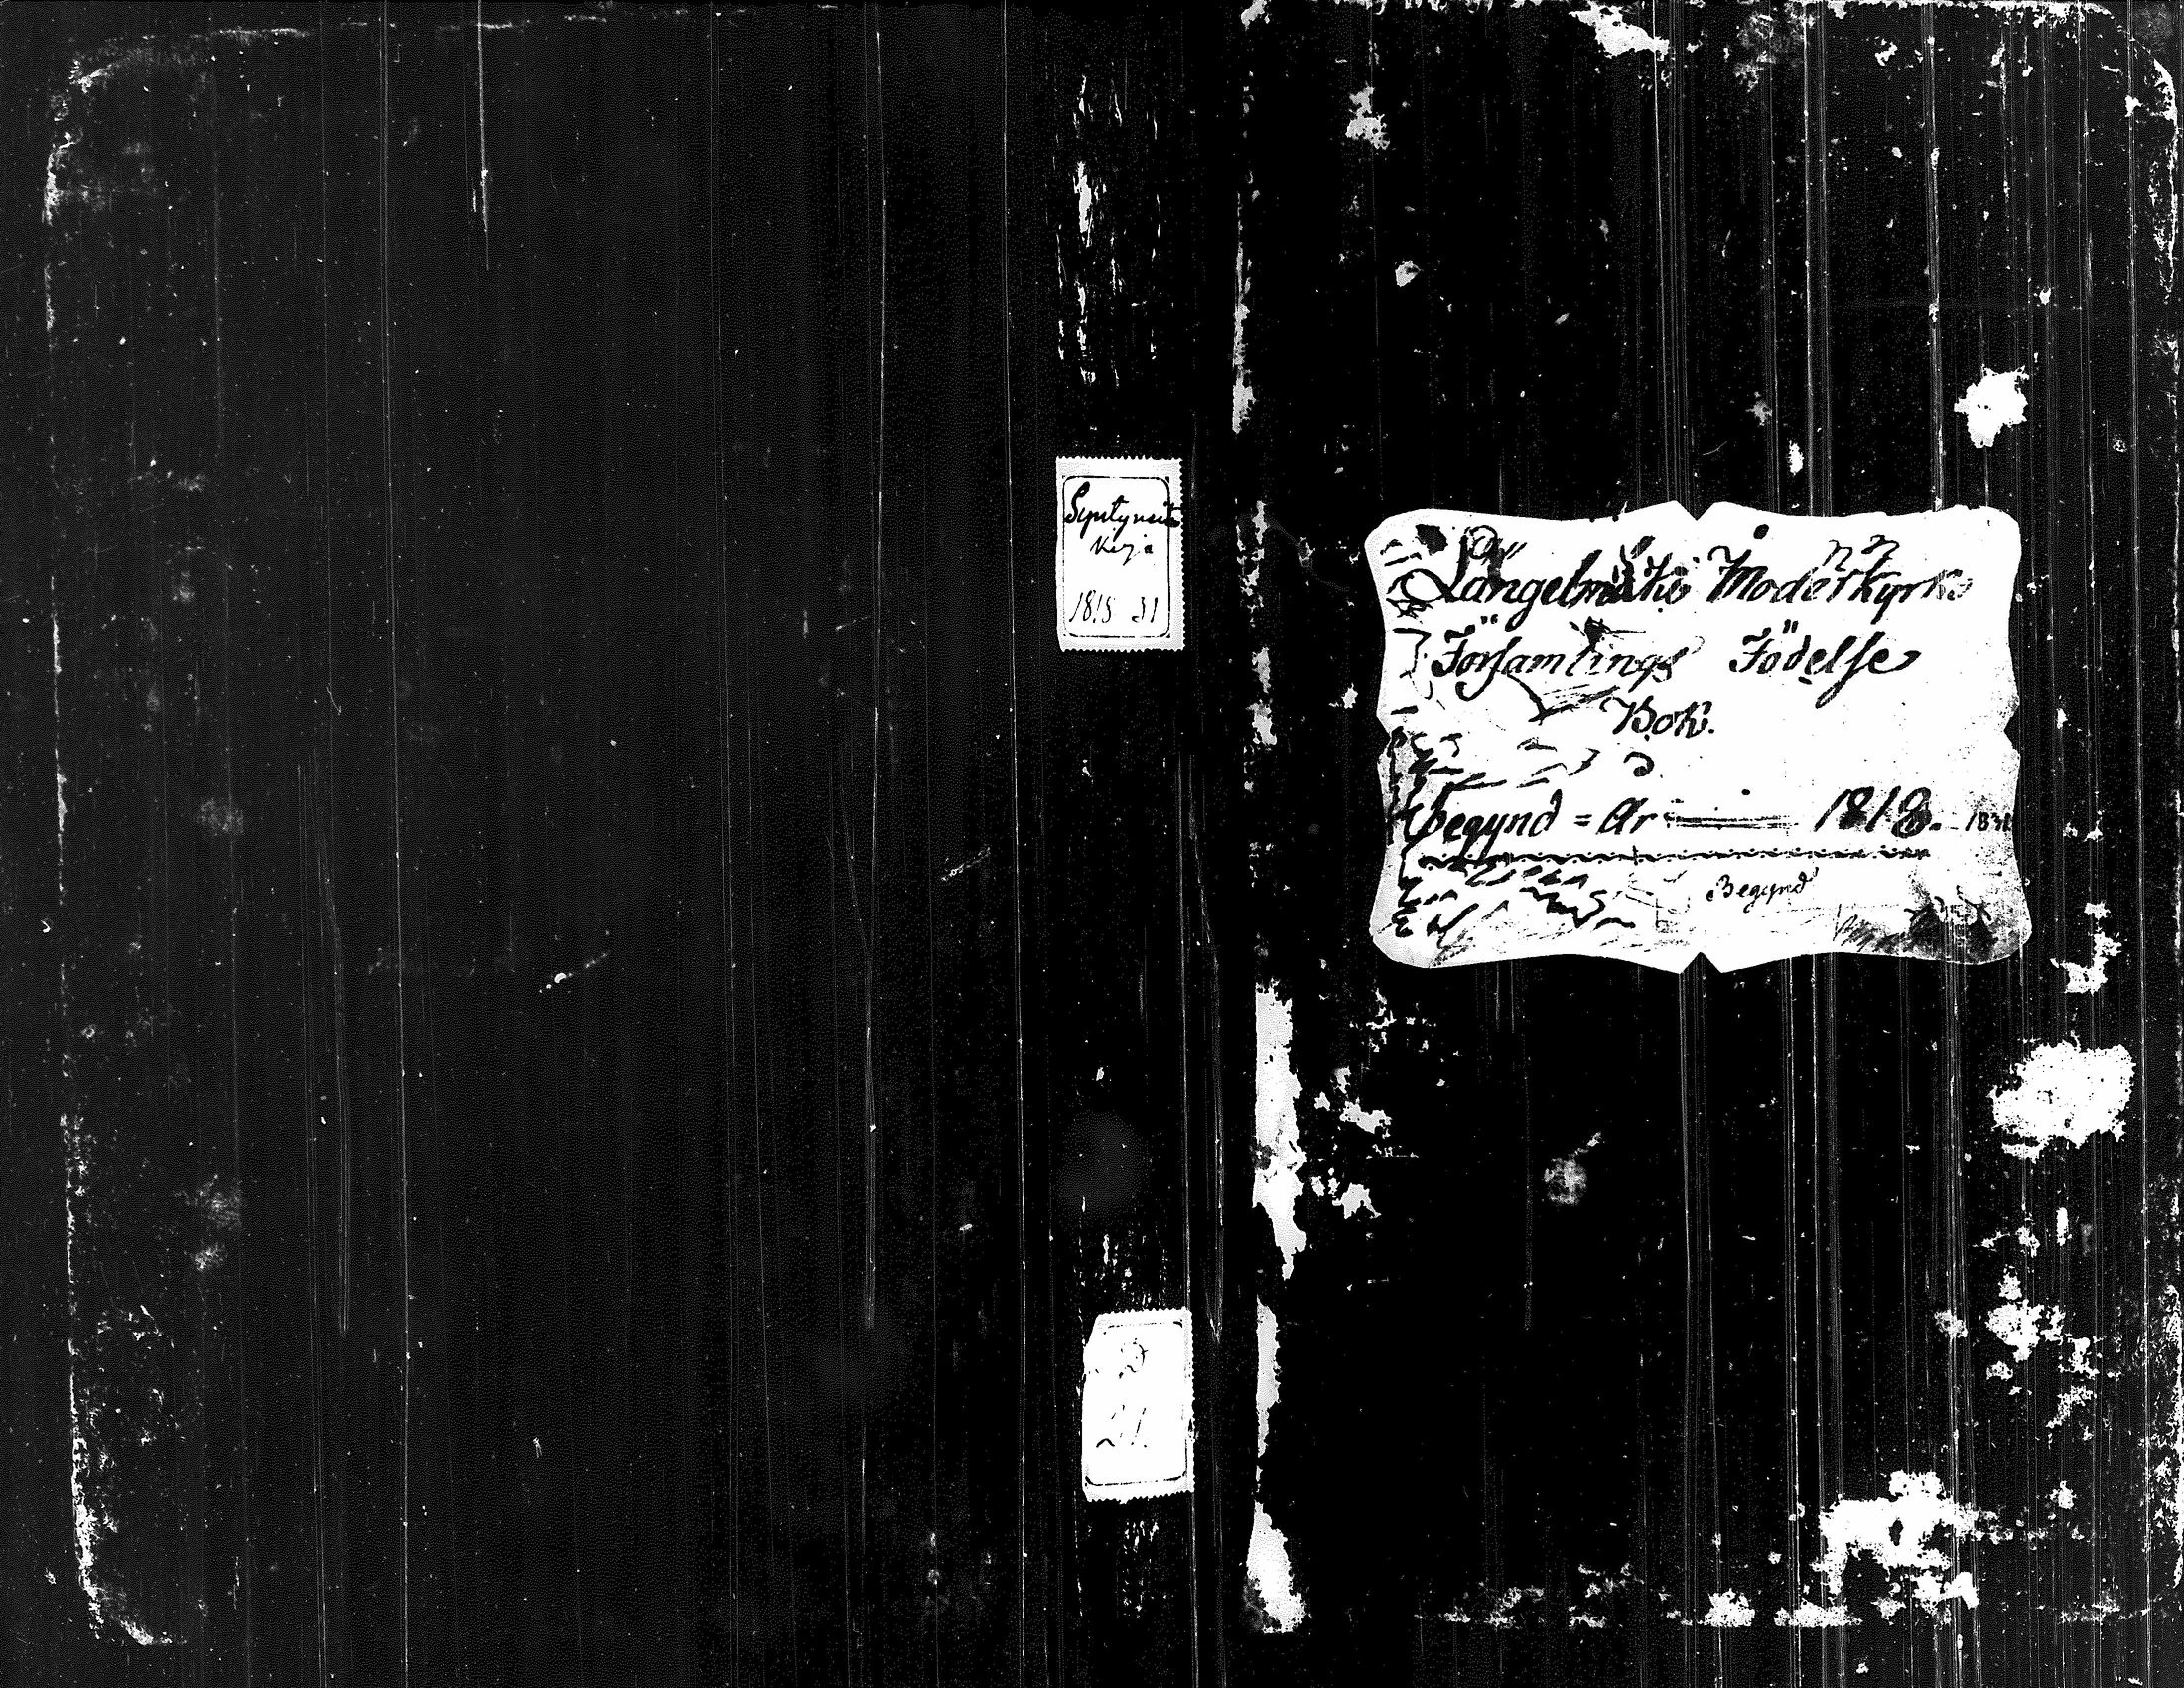 Syntyneitten
Kirja
1818 31
Längelmäki Moderkyrko
Församlings Födelse
Bok.
Begynd = År 1818. 1831
Begynd